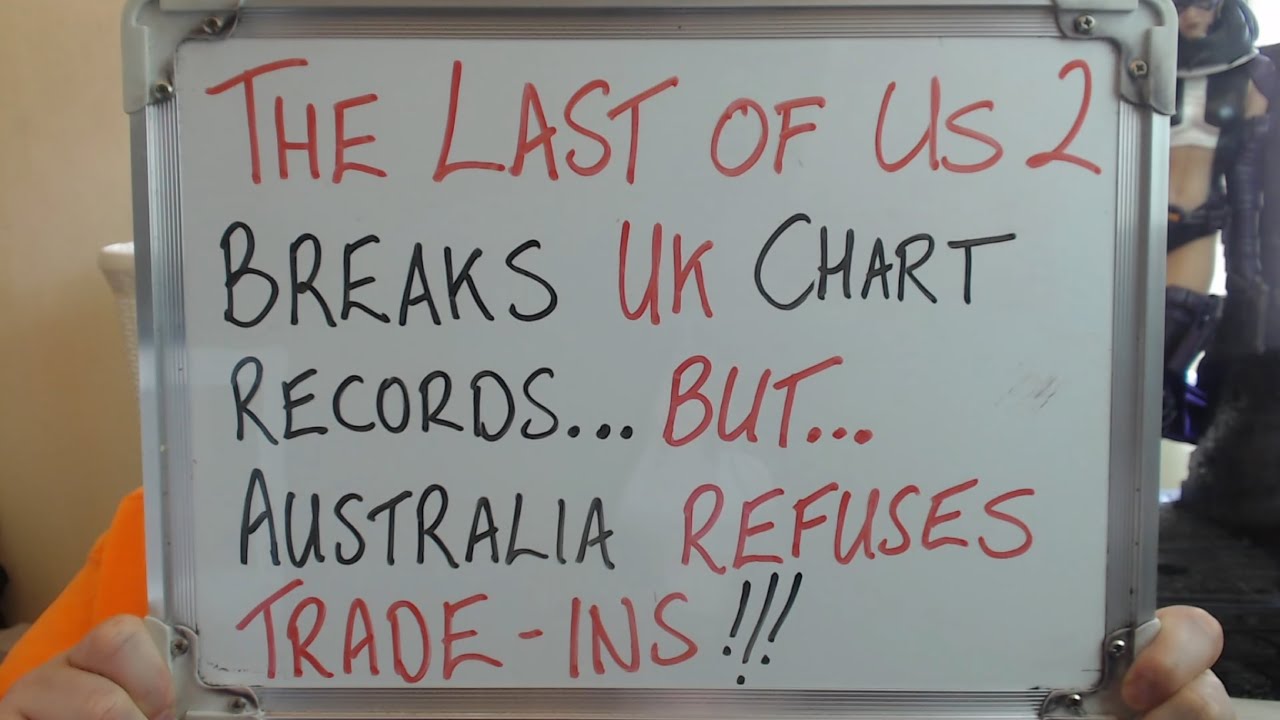 THE LAST OF US 2
BREAKS UK CHART
RECORDS... BUT...
AUSTRALIA REFUSES
TRADE-INS!!!